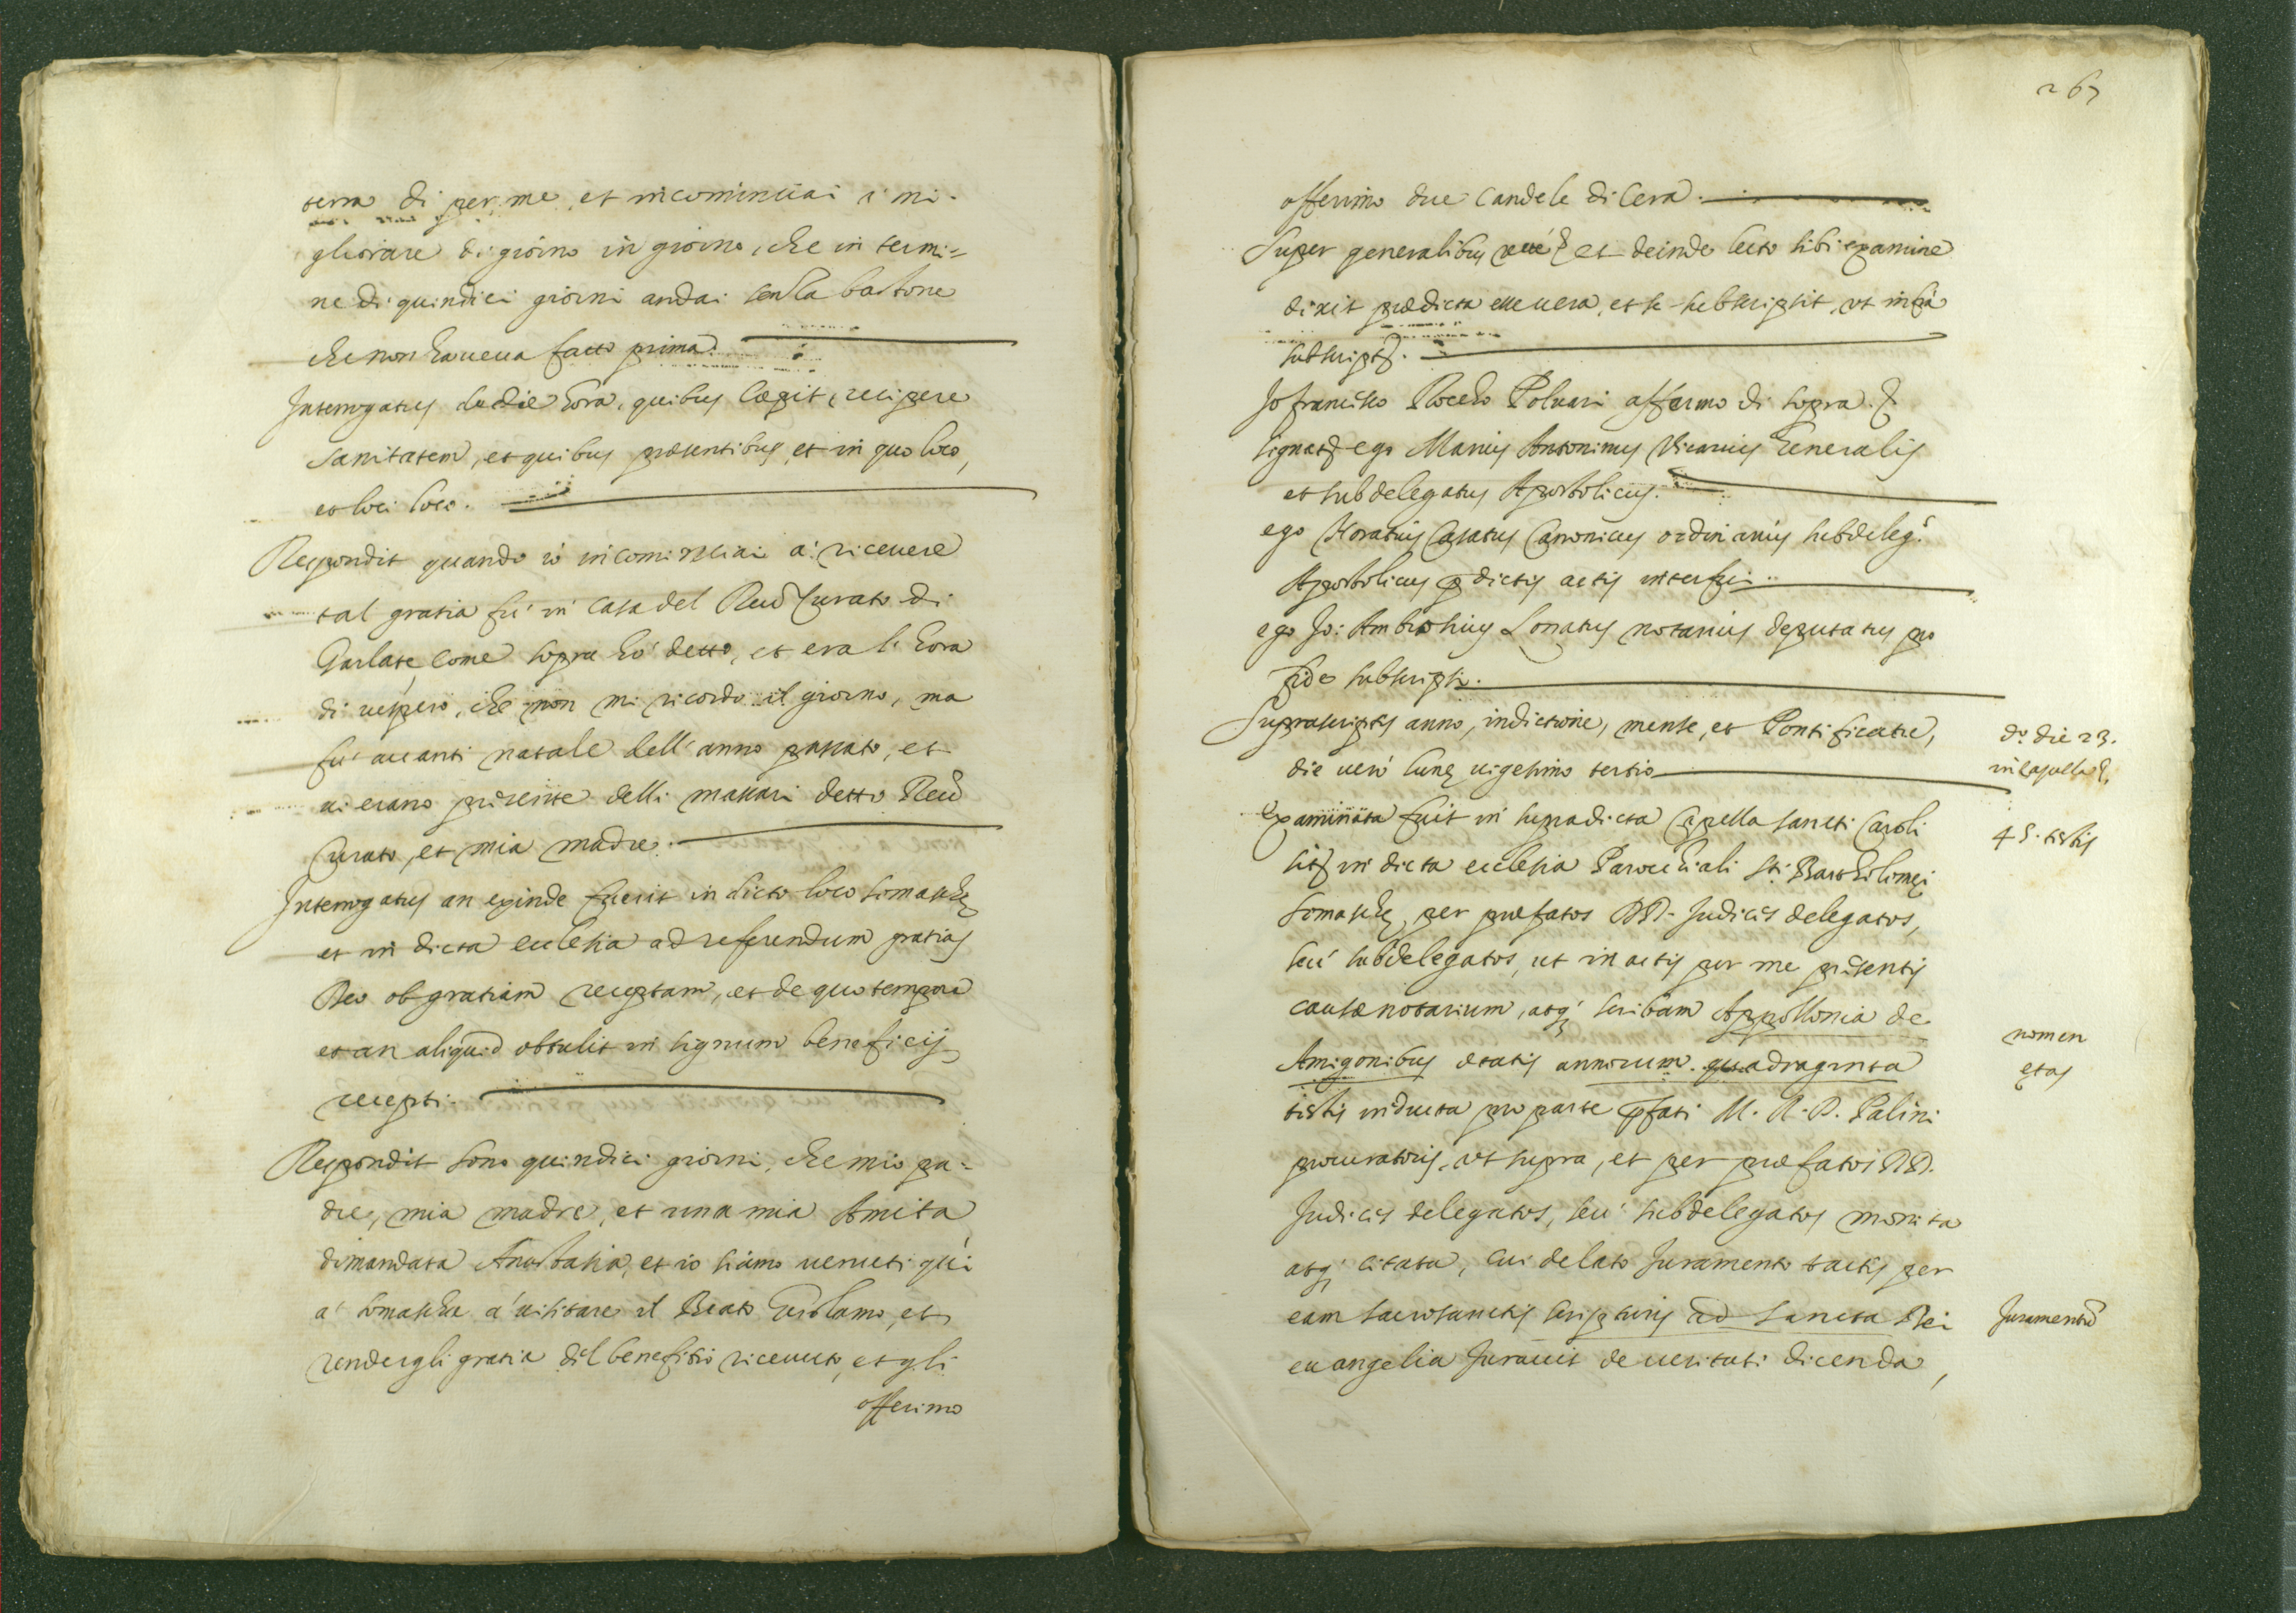 terra di per me, et incominciai à mi-
gliorare di giorno in giorno, che in termi=
ne di quindici giorni andai senza bastone
che non haueua fatto prima.
Interrogatus de die hora, quibus coepit recipere
sanitatem, et quibus præsentibus, et in quo loco,
et loci loco.
Respondit quando iò incominciai à riceuere
tal gratia fù in casa del Reud Curato di
Garlate, come sopra hò detto, et era l'hora
di uespero, che non mi ricordo il giorno, ma
fù auanti natale dell'anno passato, et
ui erano presente delli massari detto Reud
Curato, et mia madre.
Interrogatus an exinde fuerit in dicto loco Somaschę
et in dicta ecclesia ad referendum gratias
Deo ob gratiam receptam, et de quo tempore
et an aliquid obtulit in signum beneficij
recepti.
Respondit sono quindici giorni, che mio pa=
dre, mia madre, et una mia Amita
dimandata Anastasia, et io siamo uenuti quì
à Somascha à uisitare il Beato Girolamo, et
rendergli gratia del benefitio riceuuto, et gli
offerimo
267
offerimo due candele di cera.
Super generalibus recte et deinde lecto sibi examine
dixit prædicta esse uera, et se subscripsit, ut infrà
subscript.
Jo francesco Roccho Poluari affermo di sopra
signat ego Marius Antoninus Vicarius Generalis
et subdelegatus Apostolicus.
ego Horatius Casatus Canonicus ordinarius subdeleg.
Apostolicus p dictis actis interfui.
ego Jo: Ambrosius Lonatus notarius deputatus pro
fide subscripsi.
Suprascriptis anno, indictione, mense, et Pontificatu,
die uerò lunę uigesimo tertio
do die 23.
in Capella
examinata fuit in supradicta Capella sancti Caroli
45. testis
sit in dicta ecclesia Parochiali sti Bartholomęi
Somaschę per præfatos DD. Judices delegatos,
seù subdelegatos, ut in actis per me præsentis
causæ notarium, atq; scribam Appollonia de
Amigonibus ætatis annorum quadraginta
nomen
ętas
testis inducta pro parte pfati M. R. D. Palini
procuratoris, ut supra, et per præfatos DD.
Judices delegatos, seù subdelegatos monita
atq; citata, cui delato Juramento tactis per
eam sacrosanctis scripturis ad sancta Dei
Juramentū
euangelia Jurauit de ueritati dicenda,